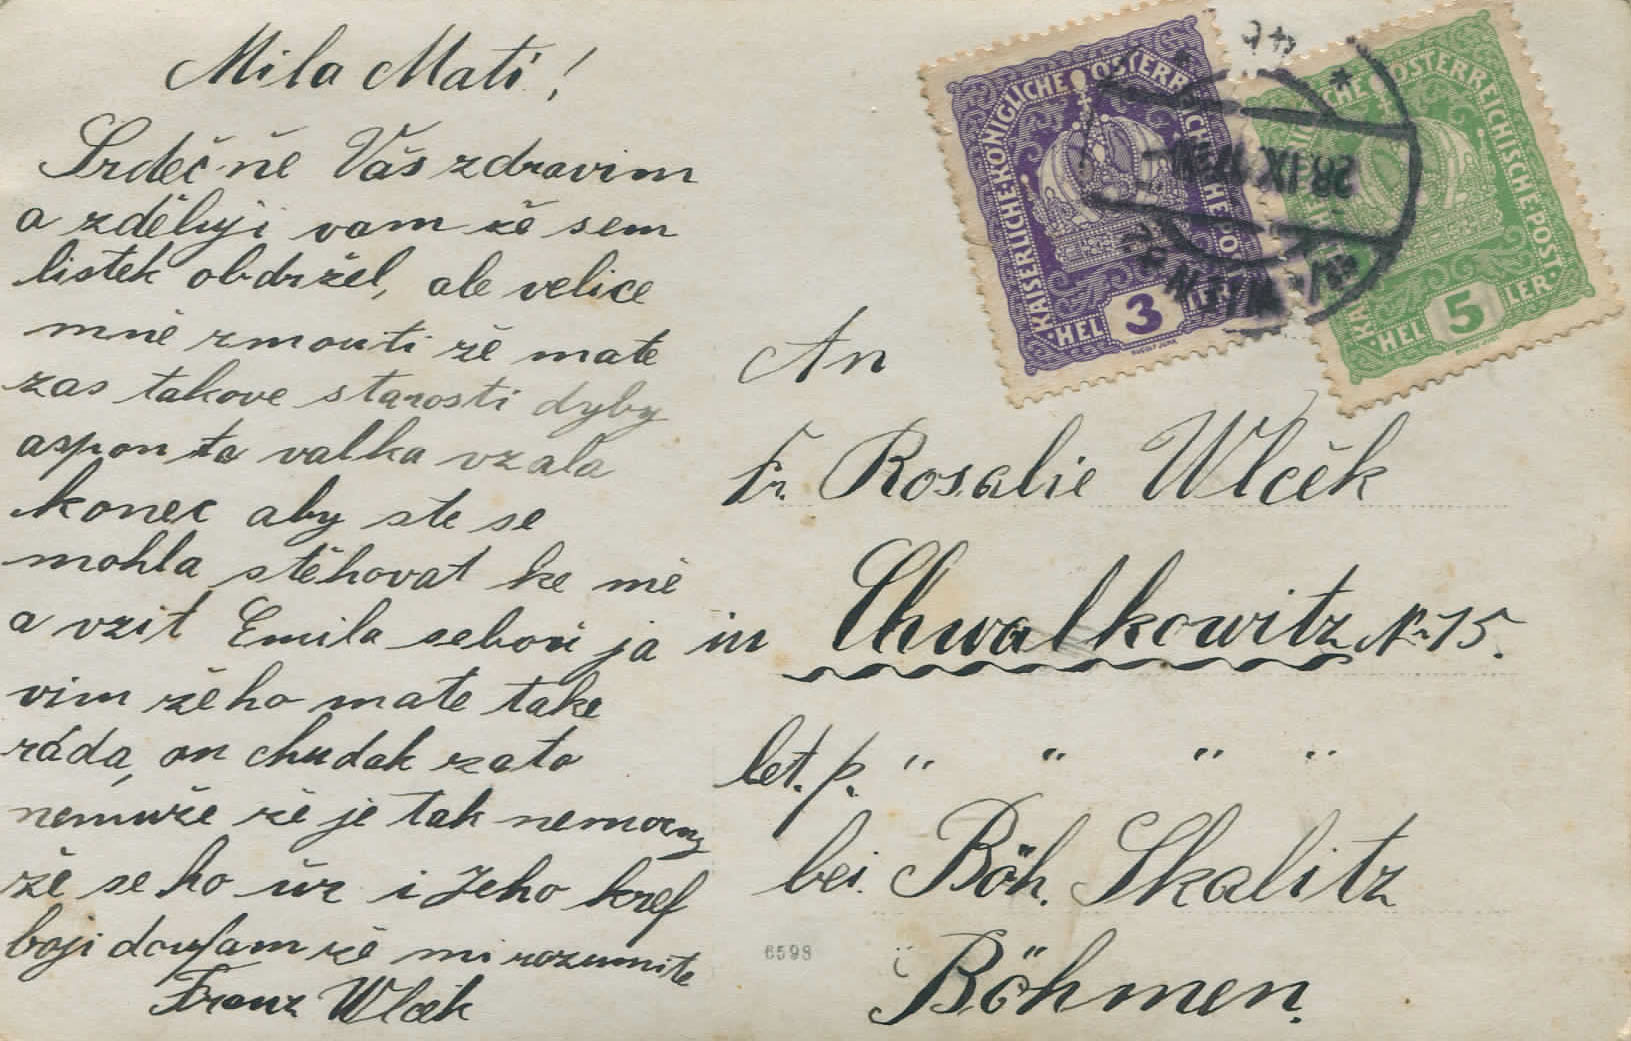 Mila Mati!
Srdečně Vás zdravim
a zděluji vam že sem
listek obdržel, ale velice
mně rmouti že mate
zas takove starosti dyby
aspon ta valka vzala
konec aby ste se
mohla stěhovat ke mě
a vzit Emila sebou ja
vim že ho mate take
ráda, on chudak zato
nemuže že je tak nemocny
že se ho už i Jeho kref
boji doufam že mi rozumite
Franz Wlček
An
Fr. Rosalie Wlcěk
in Chwalkowitz № 15.
let. p. " " " "
bei. Böh. Skalitz
Böhmen.
6598
KAISERLICHE KÖNIGLICHE ÖSTERREICHISCHE POST
HELLER
3
ÖSTERREICHISCHE POST
HELLER
5
28.IX.17
WIEN